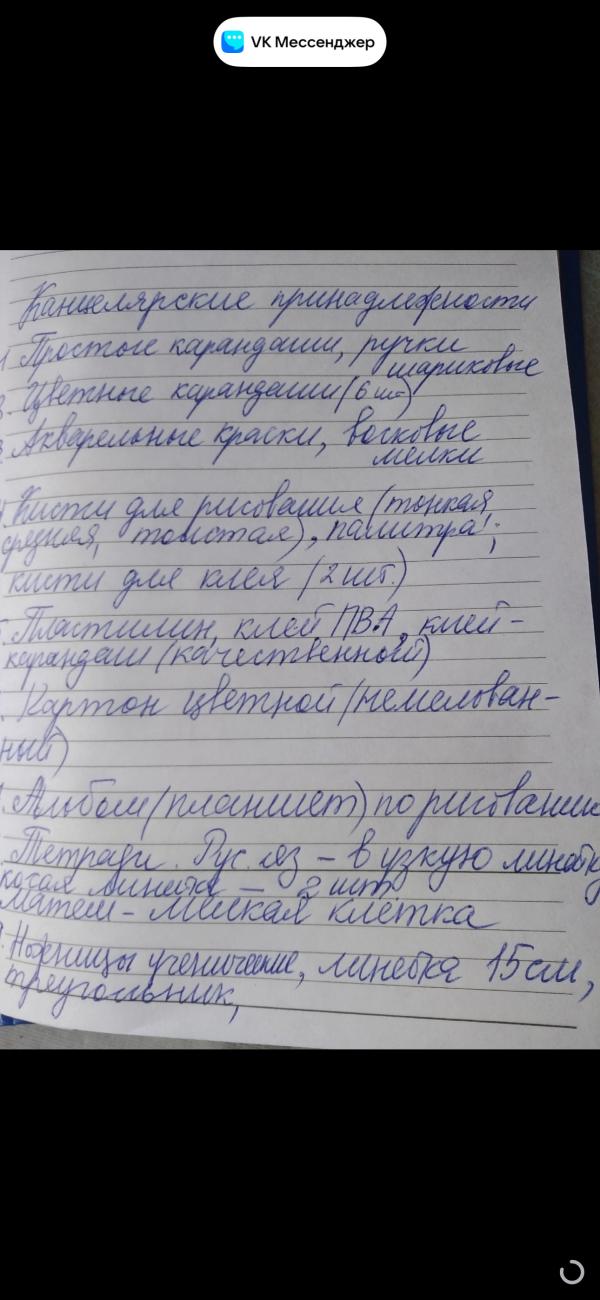 VK Мессенджер
Канцелярские принадлежности
1 Простые карандаши, ручки
шариковые
2. Цветные карандаши (6 шт)
3. Акварельные краски, восковые
мелки
4. Кисти для рисования (тонкая,
средняя, толстая), палитра;
кисти для клея (2 шт.)
5. Пластилин, клей ПВА, клей-
карандаш (качественный)
. Картон цветной (немелован-
ный)
. Альбом (планшет) по рисованию
. Тетради. Рус. яз – в узкую линейку
косая линейка – 2 шт
матем – мелкая клетка
9. Ножницы ученические, линейка 15 см,
треугольник,